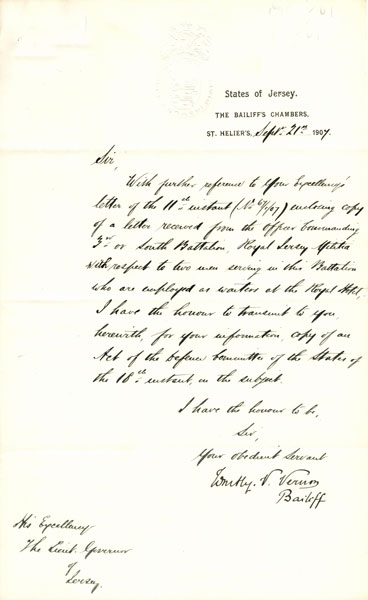 States of Jersey.
THE BAILIFF'S CHAMBERS,
ST. HELIER'S, Sept. 21st 1907
Sir,
With further reference to Your Excellency's
letter of the 11th instant (No. /07) enclosing copy
of a letter received from the Officer Commanding
3rd or South Battalion, Royal Jersey Militia
with respect to two men serving in this Battalion
who are employed as waiters at the Royal Hotel,
I have the honour to transmit to you
herewith, for your information, copy of an
Act of the Defence Committee of the States of
the 18th instant, on the subject.
I have the honour to be,
Sir,
Your obedient servant
V. Vernon
Bailiff
His Excellency
The Lieut. Governor
of
Jersey.